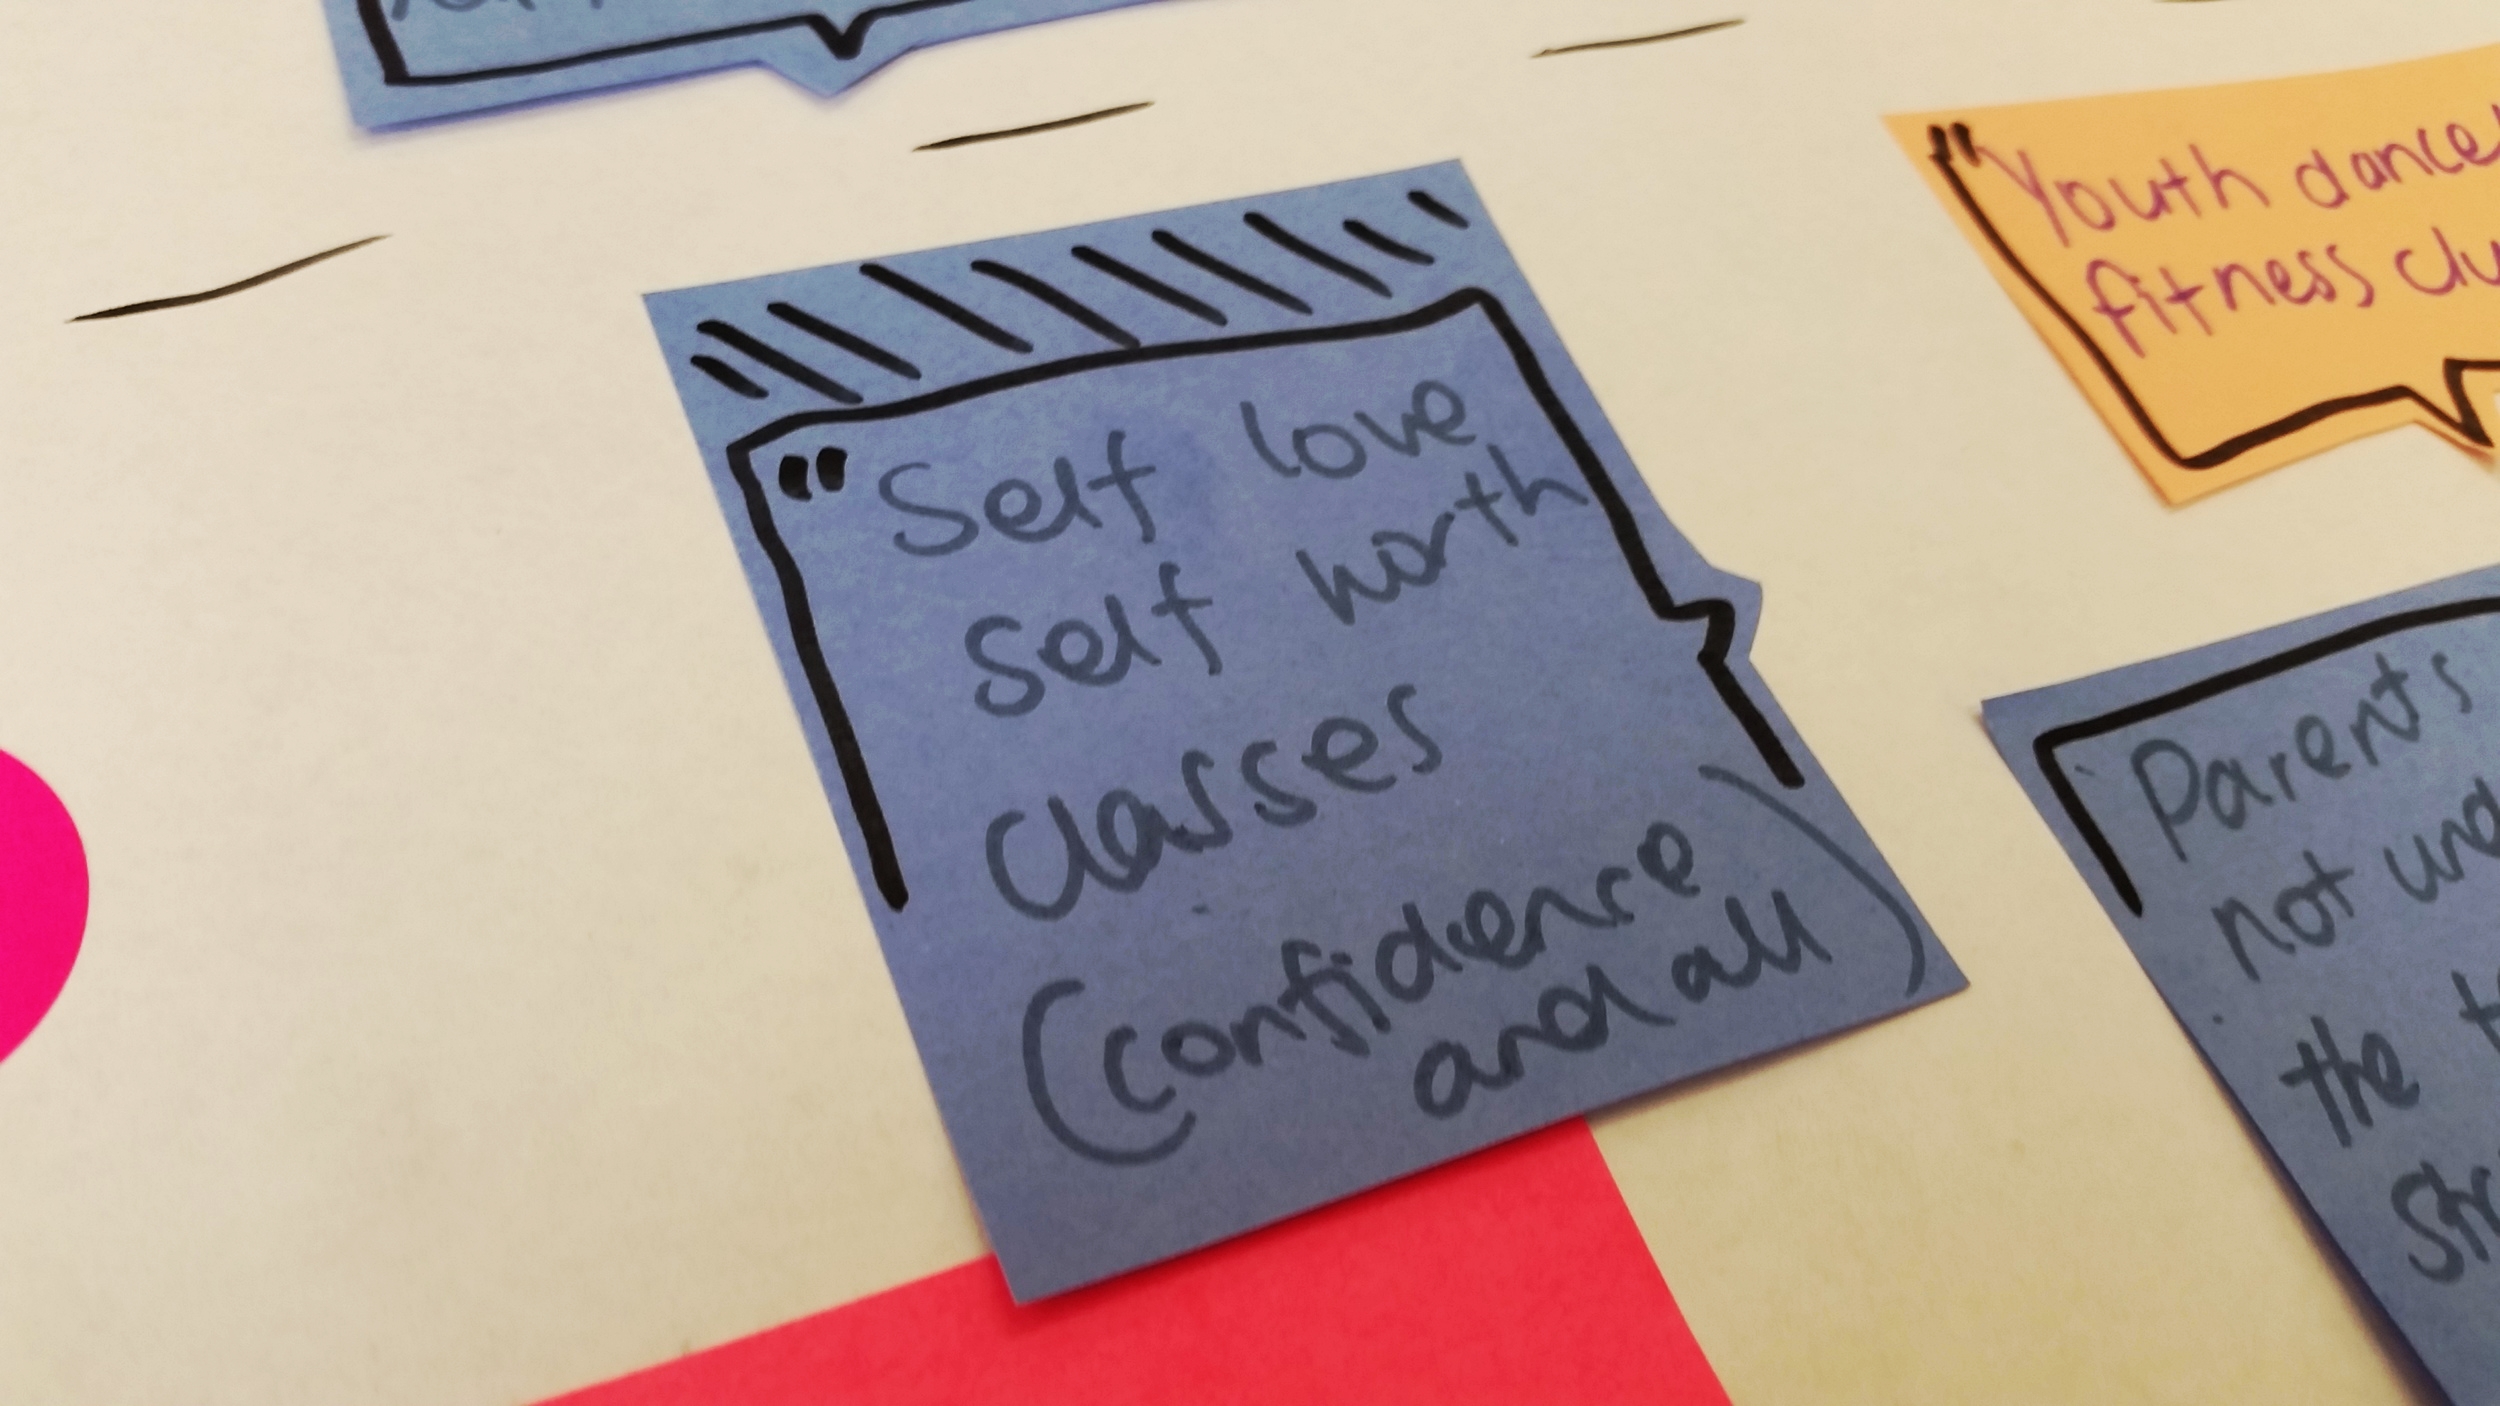 "Self love
Self worth
Classes
(confidence
and all)
"Youth dance
fitness
Parents
not
the